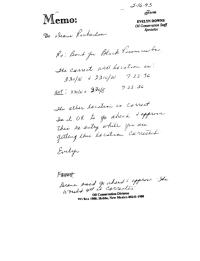 2-16-95
Memo:
EVELYN DOWNS
Oil Conservation Staff
Specialist
To Diane Richardson
Re: Bond for Black
The correct well location is:
2310/N + 2310/W 7-22-36
not:
7-22-36
The other location is correct
Is it OK to go ahead & approve
this re-entry while you are
getting this location corrected
Evelyn
Diane said go ahead & approve. She
would get it corrected
Oil Conservation Division
PO Box 1980, Hobbs, New Mexico 88241-1980